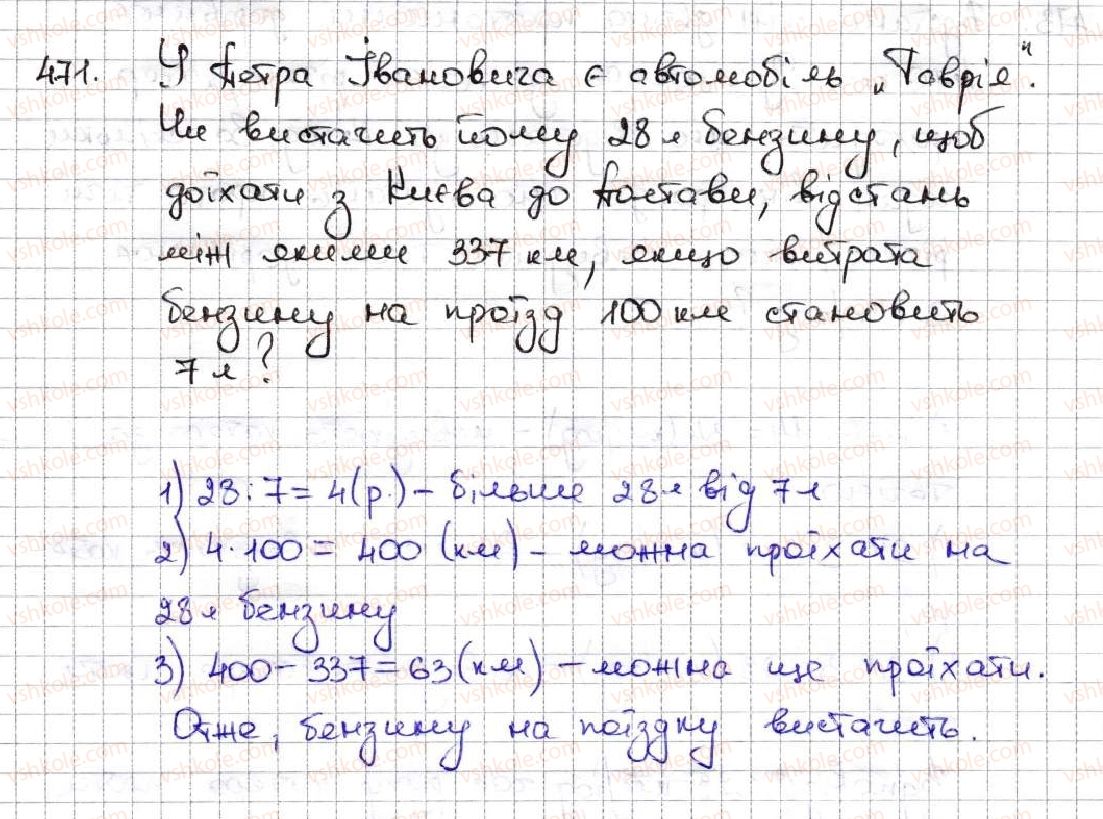 471. У Петра Івановича є автомобіль „Таврія".
Чи вистачить йому 28 л бензину, щоб
доїхати з Києва до Полтави, відстань
між якими 337 км, якщо витрата
бензину на проїзд 100 км становить
7 л?
1) 28 : 7 = 4 (р.) – більше 28 л від 7 л
2) 4 · 100 = 400 (км) – можна проїхати на
28 л бензину
3) 400 – 337 = 63 (км) – можна ще проїхати.
Отже, бензину на поїздку вистачить.